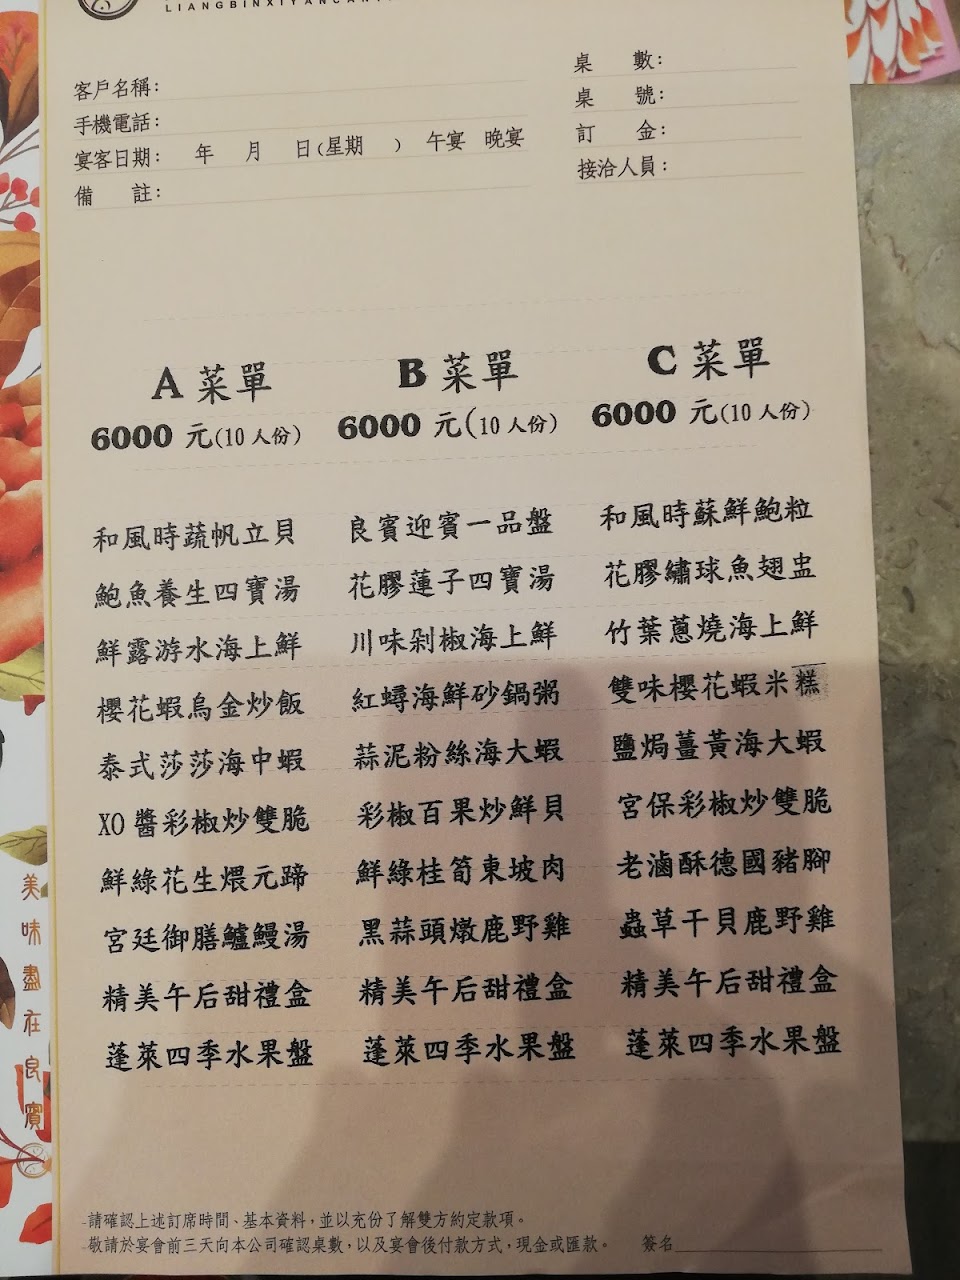 LIANGBINXIYANCAN
客戶名稱：
手機電話：
宴客日期： 年 月 日(星期 ) 午宴 晚宴
備 註：
桌 數：
桌 號：
訂 金：
接洽人員：
A 菜單
6000 元(10 人份)
和風時蔬帆立貝
鮑魚養生四寶湯
鮮露游水海上鮮
櫻花蝦烏金炒飯
泰式莎莎海中蝦
XO 醬彩椒炒雙脆
鮮綠花生煨元蹄
宮廷御膳鱸鰻湯
精美午后甜禮盒
蓬萊四季水果盤
B 菜單
6000 元(10 人份)
良賓迎賓一品盤
花膠蓮子四寶湯
川味剁椒海上鮮
紅蟳海鮮砂鍋粥
蒜泥粉絲海大蝦
彩椒百果炒鮮貝
鮮綠桂筍東坡肉
黑蒜頭燉鹿野雞
精美午后甜禮盒
蓬萊四季水果盤
C 菜單
6000 元(10 人份)
和風時蘇鮮鮑粒
花膠繡球魚翅盅
竹葉蔥燒海上鮮
雙味櫻花蝦米糕
鹽焗薑黃海大蝦
宮保彩椒炒雙脆
老滷酥德國豬腳
蟲草干貝鹿野雞
精美午后甜禮盒
蓬萊四季水果盤
-請確認上述訂席時間、基本資料，並以充份了解雙方約定款項。
-敬請於宴會前三天向本公司確認桌數，以及宴會後付款方式，現金或匯款。 簽名
美味盡在良賓